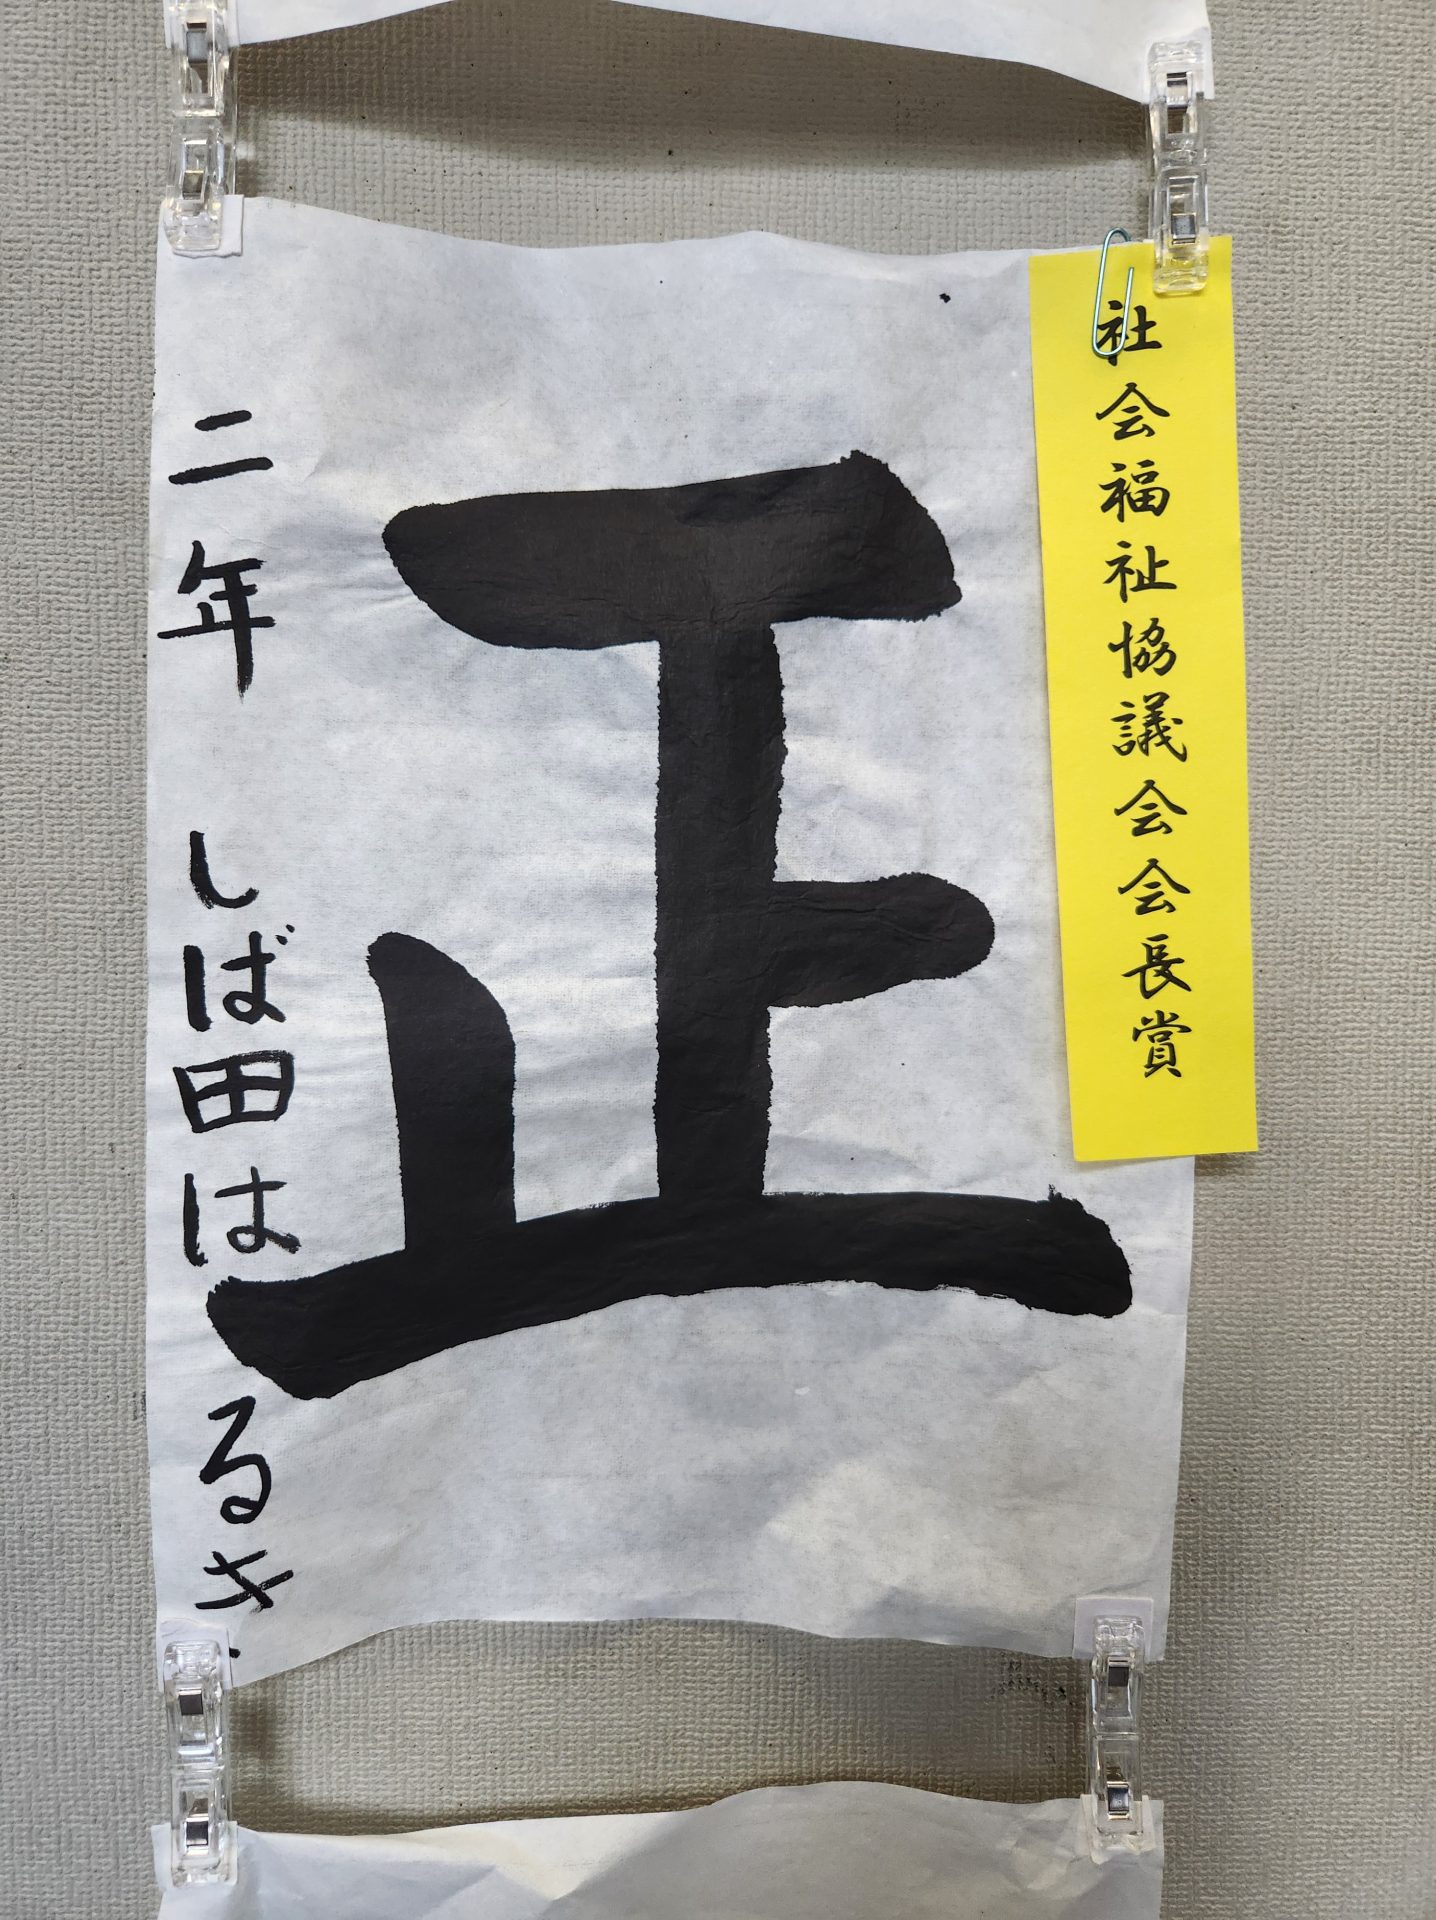 社会福祉協議会会長賞
正
二年 しば田はるき